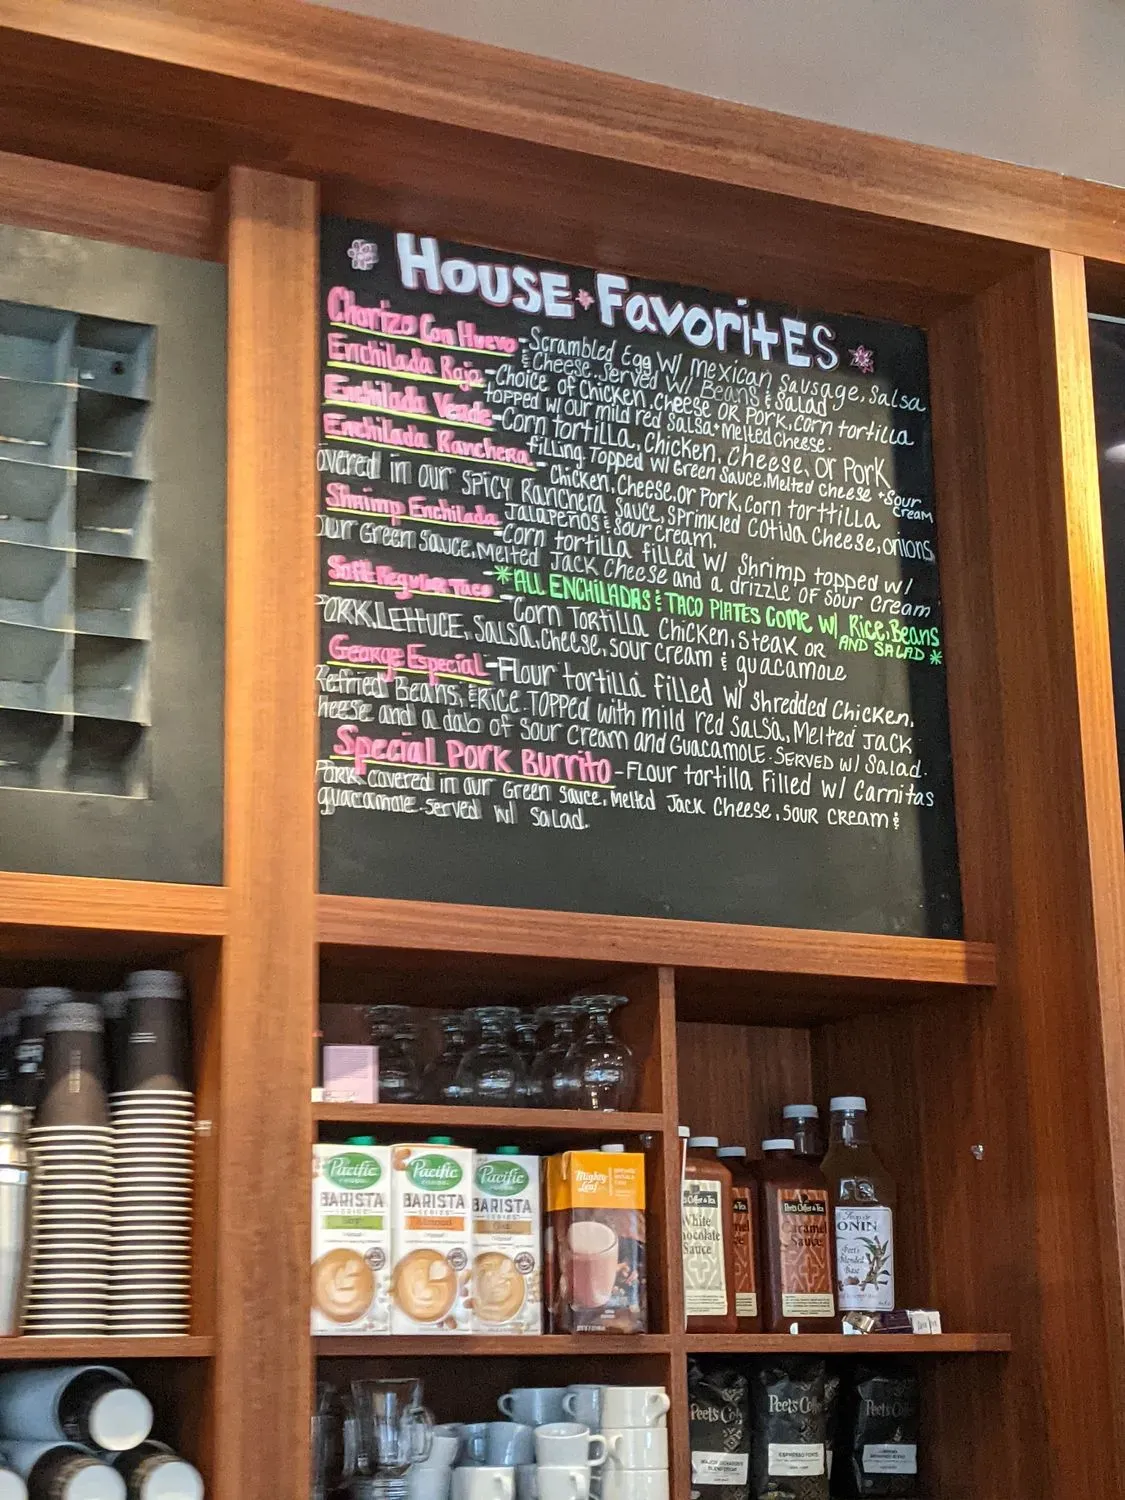 House Favorites
Chorizo Con Huevo - Scrambled Egg W/ Mexican Sausage, Salsa
& Cheese. Served W/ Beans & Salad
Enchilada Roja - Choice of Chicken, Cheese or Pork, Corn tortilla
topped w/ our mild red Salsa + Melted Cheese.
Enchilada Verde - Corn tortilla, Chicken, Cheese, or Pork
filling Topped W/ Green Sauce, Melted Cheese + Sour
Cream
Enchilada Ranchera - Chicken, Cheese, or Pork, Corn torttilla
overed in our SPICY Ranchera Sauce, sprinkled Cotida Cheese, onions,
Jalapeños & Sour Cream.
Shrimp Enchilada - Corn tortilla filled W/ Shrimp topped w/
our Green Sauce, Melted Jack Cheese and a drizzle of Sour Cream
*ALL ENCHILADAS & TACO PLATES COME W/ Rice, Beans
AND SALAD *
Soft Regular Taco - Corn Tortilla Chicken, Steak or
PORK, LETTUCE, Salsa, Cheese, Sour cream & guacamole
George Especial - Flour tortilla filled W/ Shredded Chicken,
Refried Beans, & RICE. TOPPED with mild red Salsa, Melted Jack
heese and a dab of Sour Cream and Guacamole. Served W/ Salad.
Special Pork Burrito - Flour tortilla Filled W/ Carnitas
Pork covered in our Green Sauce, Melted Jack Cheese, Sour Cream &
guacamole. Served W/ Salad.
Pacific
FOODS
BARISTA
SERIES
Original
Pacific
FOODS
BARISTA
SERIES
Almond
Original
Pacific
FOODS
BARISTA
SERIES
Original
Mighty
Leaf
Peet's Coffee & Tea
White
ocolate
Sauce
Peet's Coffee & Tea
Caramel
Sauce
ONIN
Peet's
Blended
Base
Peet's Co
MAJOR DICKASON'S
BLEND
Peet's Coffe
ESPRESSO FORTE
Peet's Co